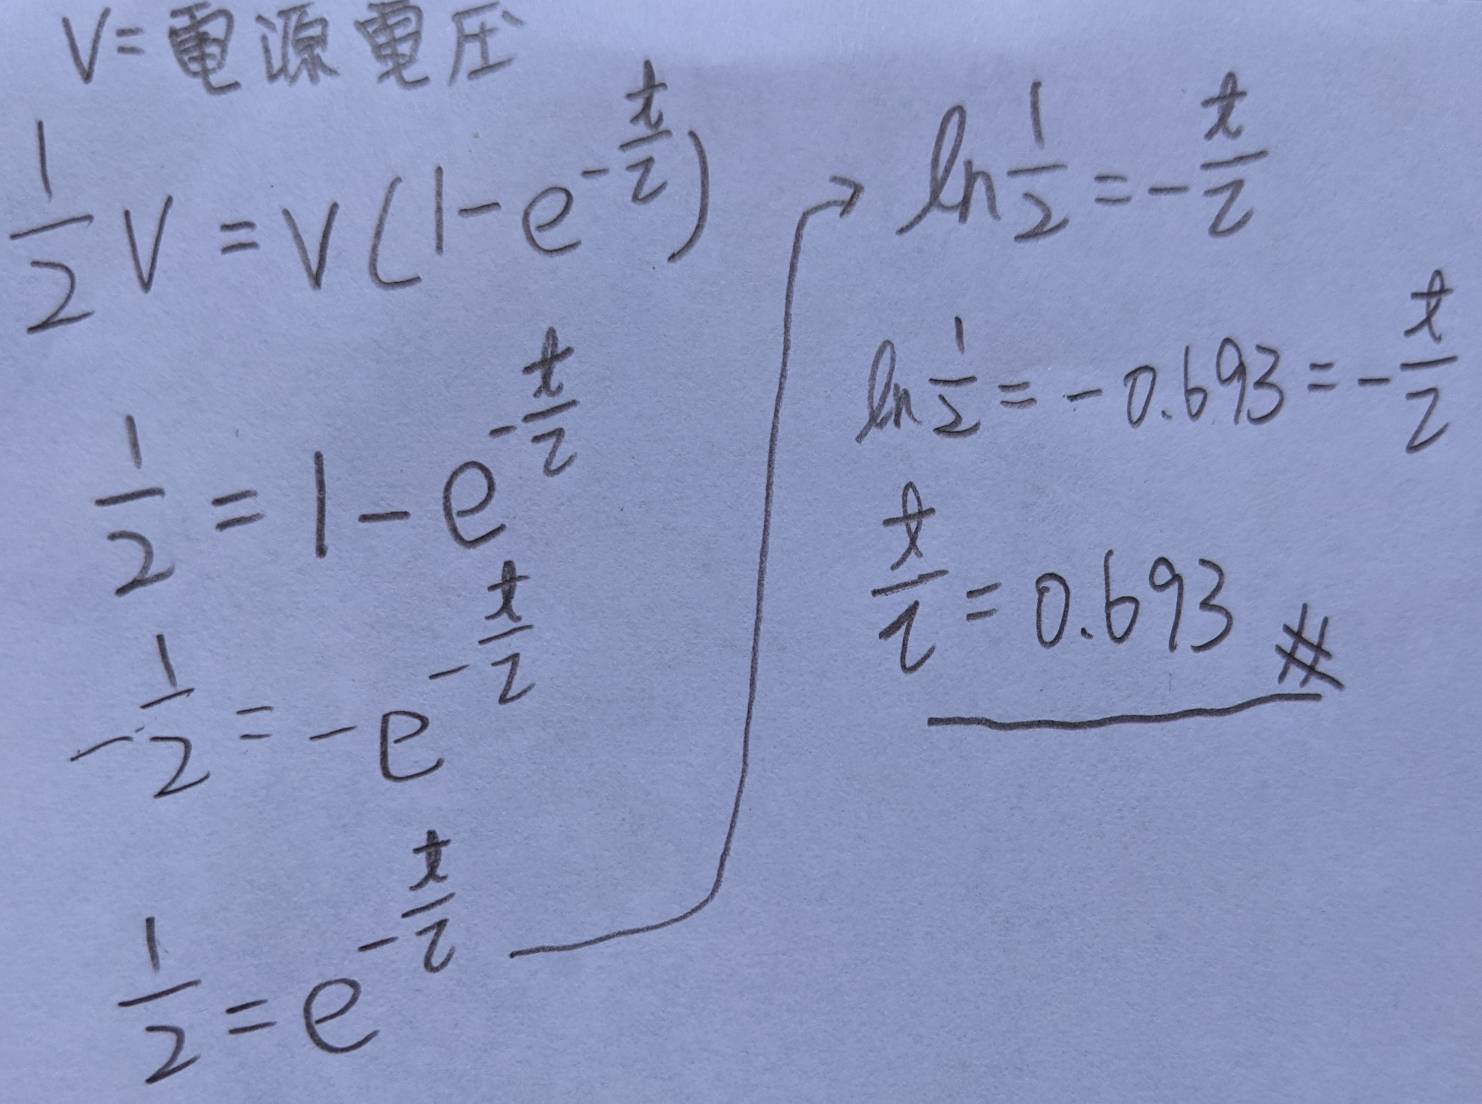 V=電源電圧
1/2 V = V(1-e^-t/τ)
1/2 = 1-e^-t/τ
-1/2 = -e^-t/τ
1/2 = e^-t/τ
→ ln 1/2 = -t/τ
ln 1/2 = -0.693 = -t/τ
t/τ = 0.693 #